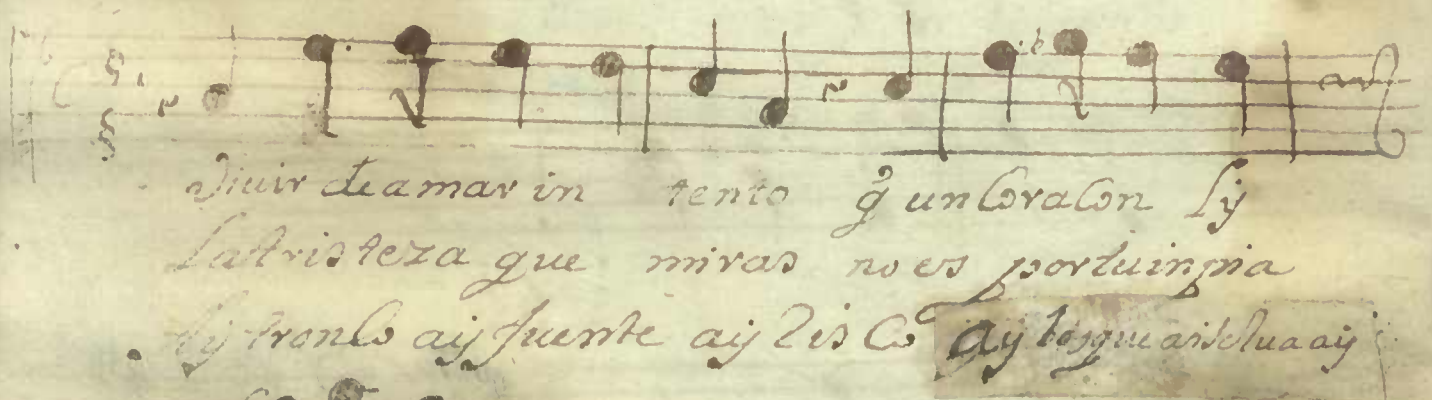 Viuir de amar in tento q̃ un CoraCon
La tristeza que miras no es por tu inpia
ay tronCo ay fuente ay RisCo ay bosque ay selua ay